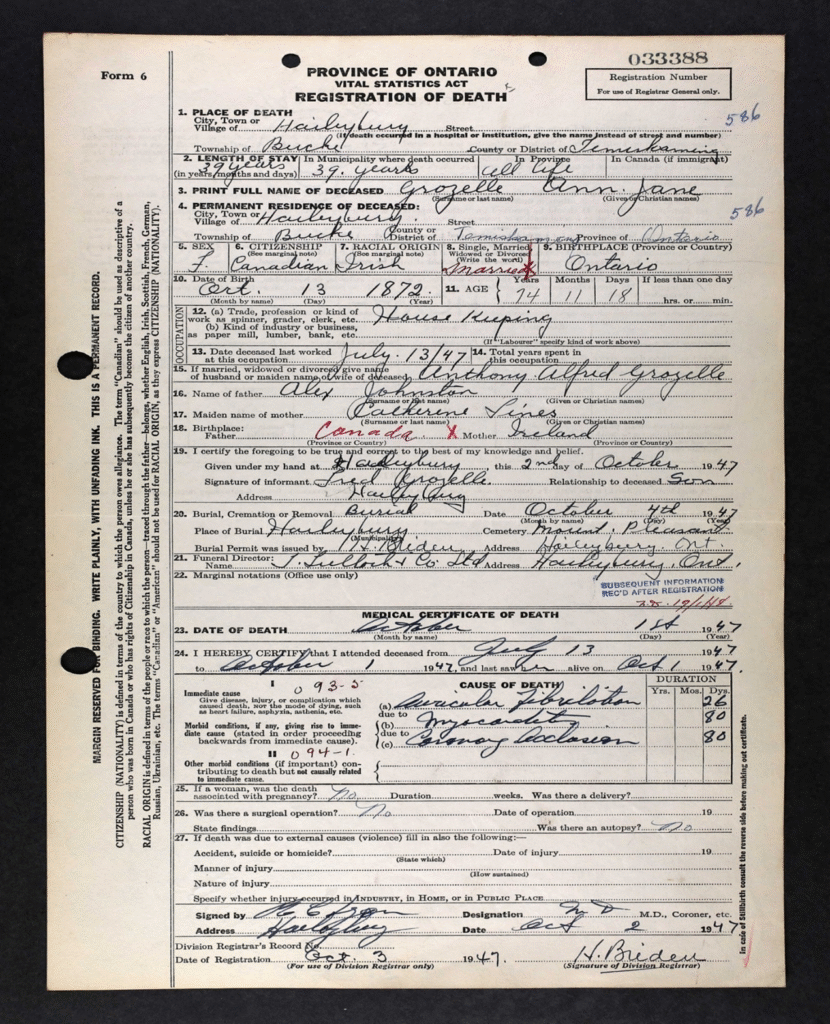 Form 6
033388
PROVINCE OF ONTARIO
VITAL STATISTICS ACT
REGISTRATION OF DEATH
Registration Number
For use of Registrar General only.
586
1. PLACE OF DEATH
City, Town or Village of Haileybury Street
(If death occurred in a hospital or institution, give the name instead of street and number)
Township of Bucke County or District of Temiskaming
2. LENGTH OF STAY (in years, months and days) 39 years In Municipality where death occurred 39. years In Province all life In Canada (if immigrant)
3. PRINT FULL NAME OF DECEASED Grozelle Ann. Jane
(Surname or last name) (Given or Christian names)
4. PERMANENT RESIDENCE OF DECEASED:
586
City, Town or Village of Haileybury. Street
Township of Bucke County or District of Temiskaming Province of Ontario
5. SEX F. 6. CITIZENSHIP (See marginal note) Canadian 7. RACIAL ORIGIN (See marginal note) Irish 8. Single, Married, Widowed or Divorced (Write the word) Married X 9. BIRTHPLACE (Province or Country) Ontario
10. Date of Birth Oct. 13 1872. 11. AGE Years 74 Months 11 Days 18 If less than one day hrs. or min.
(Month by name) (Day) (Year)
OCCUPATION
12. (a) Trade, profession or kind of work as spinner, grader, clerk, etc. House Keeping
(b) Kind of industry or business, as paper mill, lumber, bank, etc.
(If "Labourer" specify kind of work above)
13. Date deceased last worked at this occupation July. 13/47 14. Total years spent in this occupation
15. If married, widowed or divorced give name of husband or maiden name of wife of deceased Anthony Alfred Grozelle
16. Name of father Alex Johnston
(Surname or last name) (Given or Christian names)
17. Maiden name of mother Catherine Sines
(Surname or last name) (Given or Christian names)
18. Birthplace: Father Canada X Mother Ireland
(Province or Country) (Province or Country)
19. I certify the foregoing to be true and correct to the best of my knowledge and belief.
Given under my hand at Haileybury this 2nd day of October 1947
Signature of informant Fred Grozelle Relationship to deceased Son
Address Haileybury
20. Burial, Cremation or Removal Burial Date October 4th 1947
(Month by name) (Day) (Year)
Place of Burial Haileybury Cemetery Mount Pleasant
(Municipality)
Burial Permit was issued by H. Brieden Address Haileybury. Ont.
21. Funeral Director: Name Co Ltd Address Haileybury Ont.
22. Marginal notations (Office use only)
SUBSEQUENT INFORMATION
REC'D AFTER REGISTRATION
MEDICAL CERTIFICATE OF DEATH
23. DATE OF DEATH October 1st 1947
(Month by name) (Day) (Year)
24. I HEREBY CERTIFY that I attended deceased from July 13 1947
to October 1 1947, and last saw her alive on Oct 1 1947.
I 093-5 CAUSE OF DEATH DURATION
Yrs. Mos. Dys.
Immediate cause
Give disease, injury, or complication which caused death, not the mode of dying, such as heart failure, asphyxia, asthenia, etc.
(a) Auricular Fibrilation 26
due to
Morbid conditions, if any, giving rise to immediate cause (stated in order proceeding backwards from immediate cause).
(b) Myocarditis 80
due to
(c) Coronary Occlusion 80
II 094-1.
Other morbid conditions (if important) contributing to death but not causally related to immediate cause.
25. If a woman, was the death associated with pregnancy? No Duration weeks. Was there a delivery?
26. Was there a surgical operation? No Date of operation 19
State findings Was there an autopsy? No
27. If death was due to external causes (violence) fill in also the following:—
Accident, suicide or homicide? Date of injury 19
(State which)
Manner of injury
(How sustained)
Nature of injury
Specify whether injury occurred in INDUSTRY, in HOME, or in PUBLIC PLACE
Signed by Designation M D M.D., Coroner, etc.
Address Haileybury Date Oct 2 1947
Division Registrar's Record No.
Date of Registration Oct. 3 1947. H. Brieden
(For use of Division Registrar only) (Signature of Division Registrar)
MARGIN RESERVED FOR BINDING. WRITE PLAINLY, WITH UNFADING INK. THIS IS A PERMANENT RECORD.
CITIZENSHIP (NATIONALITY) is defined in terms of the country to which the person owes allegiance. The term "Canadian" should be used as descriptive of a
person who was born in Canada or who has rights of Citizenship in Canada, unless he or she has subsequently become the citizen of another country.
RACIAL ORIGIN is defined in terms of the people or race to which the person—traced through the father—belongs, whether English, Irish, Scottish, French, German,
Russian, Ukrainian, etc. The terms "Canadian" or "American" should not be used for RACIAL ORIGIN, as they express CITIZENSHIP (NATIONALITY).
In case of Stillbirth consult the reverse side before making out certificate.